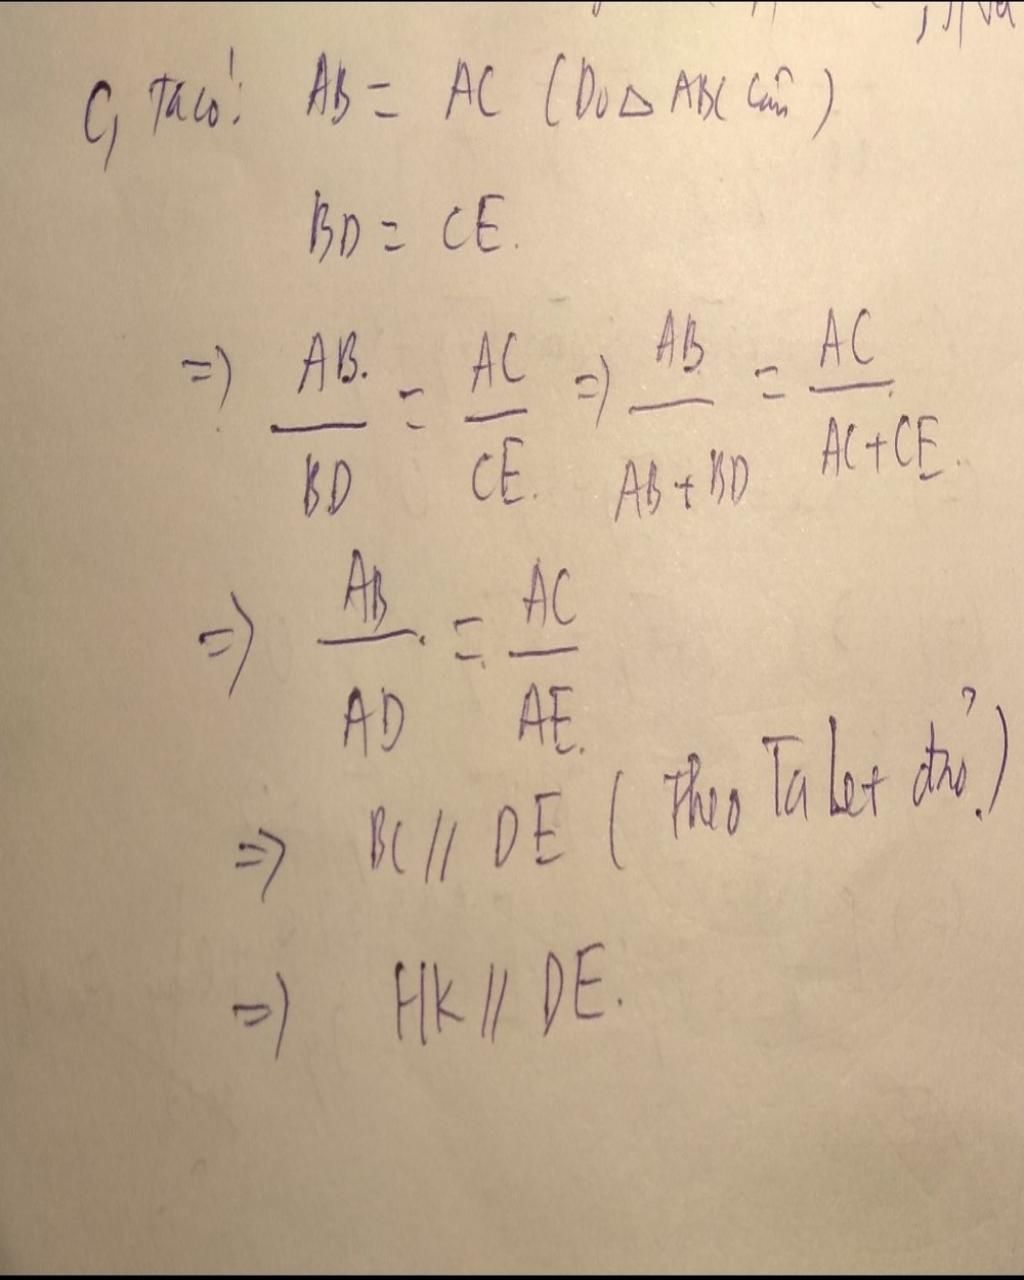 C, Ta có: AB = AC (Do Δ ABC cân)
BD = CE.
=> AB/BD = AC/CE => AB/AB+BD = AC/AC+CE.
=> AB/AD = AC/AE.
=> BC // DE (Theo Ta let đảo)
=> HK // DE.